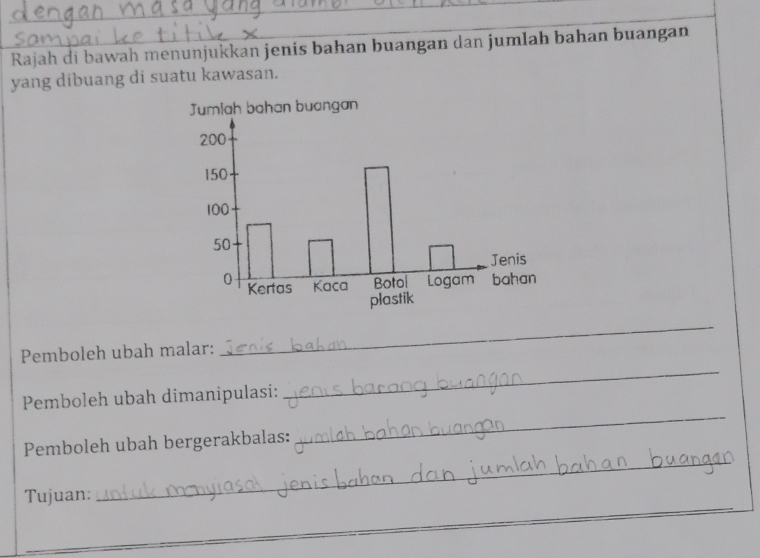 dengan masa yang
sampai ke titik x
Rajah di bawah menunjukkan jenis bahan buangan dan jumlah bahan buangan
yang dibuang di suatu kawasan.
Jumlah bahan buangan
200
150
100
50
0
Kertas Kaca Botol plastik Logam
Jenis bahan
Pemboleh ubah malar: jenis bahan
Pemboleh ubah dimanipulasi: jenis barang buangan
Pemboleh ubah bergerakbalas: jumlah bahan buangan
Tujuan: untuk menyiasat jenis bahan dan jumlah bahan buangan